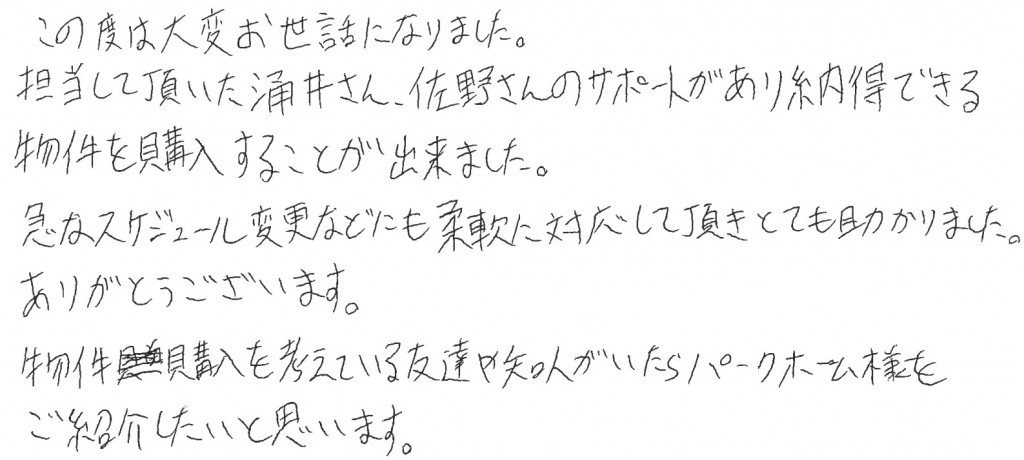 この度は大変お世話になりました。
担当して頂いた涌井さん、佐野さんのサポートがあり納得できる
物件を購入することが出来ました。
急なスケジュール変更などにも柔軟に対応して頂きとても助かりました。
ありがとうございます。
物件購入を考えている友達や知人がいたらパークホーム様を
ご紹介したいと思います。